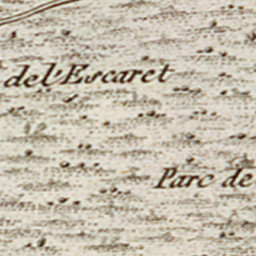 de l'Escaret
Parc de